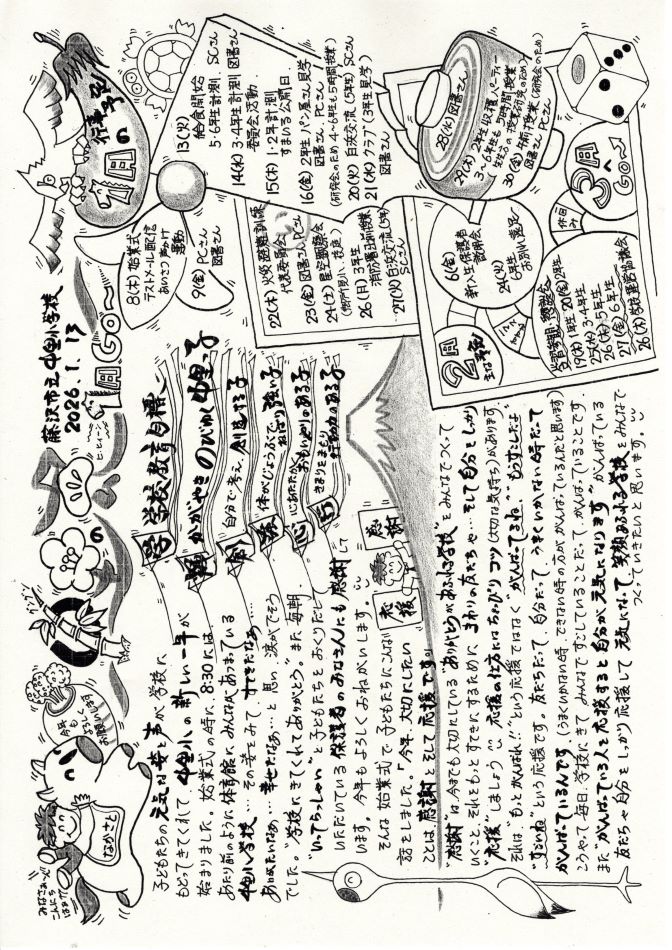 みなさぁ〜ん!!
こんにちはぁ??
なかさと
今年もよろしくお願いします
藤沢市立中里小学校
2026.1.13
1月.GO〜
子どもたちの元気な姿と声が学校に、
もどってきてくれて中里小の新しい一年が
始まりました。始業式の時に、8:30には
あたり前のように体育館にみんなが、あつまっている
中里小学校…その姿をみて、すてきだなあ…
ありがたいなあ…幸せだなあ…と思い涙がでそう
でした。"学校にきてくれてありがとう。"また毎朝
"いってらっしゃい"と子どもたちをおくりだし
いただいている保護者のみなさんにも感謝して
います。今年もよろしくおねがいします。
そんな始業式で子どもたちにこんなお
話をしました。「今年、大切にしたい
ことは、感謝とそして応援です。」
"感謝"は今までも大切にしている"ありがとうがあふれる学校"をみんなでつくって
いくこと。それをもっとすてきにするために、まわりの友だちや…そして自分をしっかり
"応援"しましょう 応援の仕方にはちょぴりコツ(大切な気持ち)があります。
それは、もっとがんばれ!!"という応援ではなく"がんばってるね"、"もう少しだよ"
"すごいね"という応援です。友だちだって、自分だって、うまくいかない時だって
がんばっているんです。(うまくいかない時、できない時の方が、がんばっているんだと思います)
こうやって毎日、学校にきて、みんなですごしていることだって、がんばっていることです。
また"がんばっている人を応援すると自分が元気になります"がんばっている
友だちや自分をしっかり応援して元気になって、笑顔あふれる学校をみんなで
つくっていきたいと思います。
感謝
応援
学校教育目標
かがやきのびゆく中里っ子
創
自分で考え、創造する子
体がじょうぶで、ねばり強い子
心
心あたたかく、おもいやりのある子
きまりをまもり、行動力のある子
1月の行事予定
8(木) 始業式
テストメール配信
あいさつ声かけ運動
9(金) PCさん
図書さん
13(火)
給食開始
5・6年生計測
SCさん
図書さん
14(水) 3・4年生計測
委員会活動
15(木) 1・2年計測
すまいる公開日
16(金) 2年生パン屋さん見学
図書さん PCさん
(研究会のため4〜6年生も5時間授業)
20(火) 白浜交流(5年) SCさん
21(水) クラブ(3年生見学)
22(木) 火災避難訓練
代表委員会
23(金) 図書さん PCさん
24(土) 星空観察会
26(月) 3年生
消防署出前授業
27(火) 白浜交流(5年)
SCさん
28(水) 図書さん
29(木) 2年生収穫パーティー
30(金)
図書さん PCさん
2月
主な予定
6(金)
新入生保護者
説明会
24(火)
6年生
お別れ遠足
学習参観・懇談会
19(木) 1年生 20(金) 2年生
25(水) 3・4年生
26(木) 5年生
27(金) 6年生
26(木) 学校運営協議会
一回休み
3月へ
GO〜